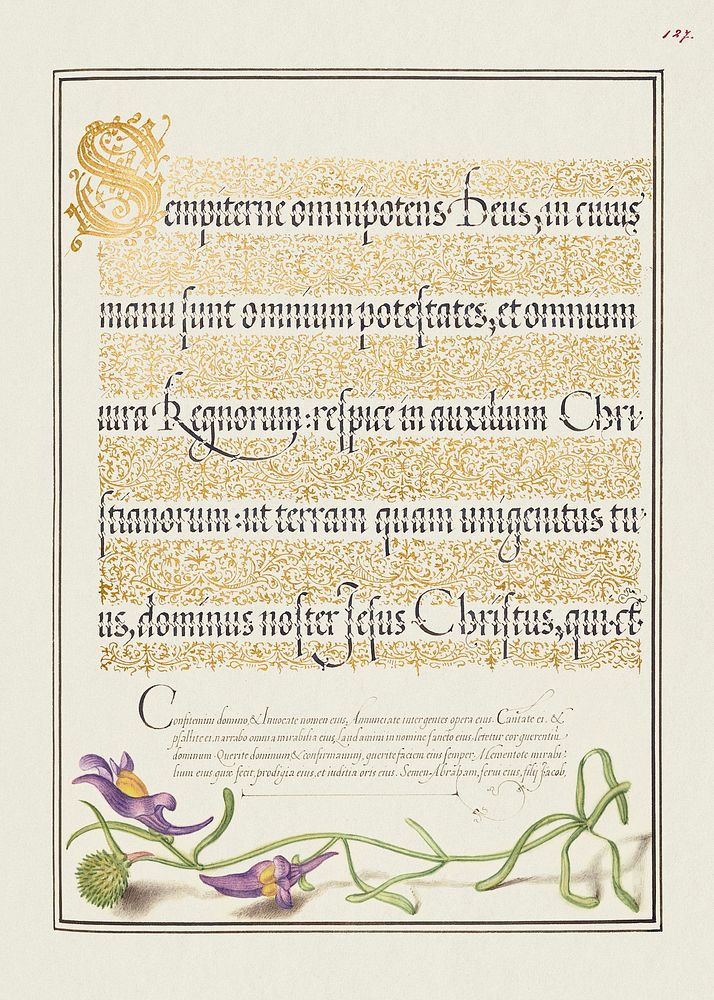 127.
Sempiterne omnipotens Deus, in cuius
manu sunt omnium potestates, et omnium
iura Regnorum: respice in auxilium Chri
stianorum: ut terram quam unigenitus tu
us, dominus noster Jesus Christus, qui ct
Confitemini domino, & Invocate nomen eius, Annunciate inter gentes opera eius. Cantate ei, &
psallite ei, narrabo omnia mirabilia eius, Laudamini in nomine sancto eius, letetur cor querentiū
dominum. Querite dominum, & confirmamini, querite faciem eius semper. Mementote mirabi-
lium eius quæ fecit, prodigia eius, et iuditia oris eius. Semen Abraham, servi eius, filij Jacob,